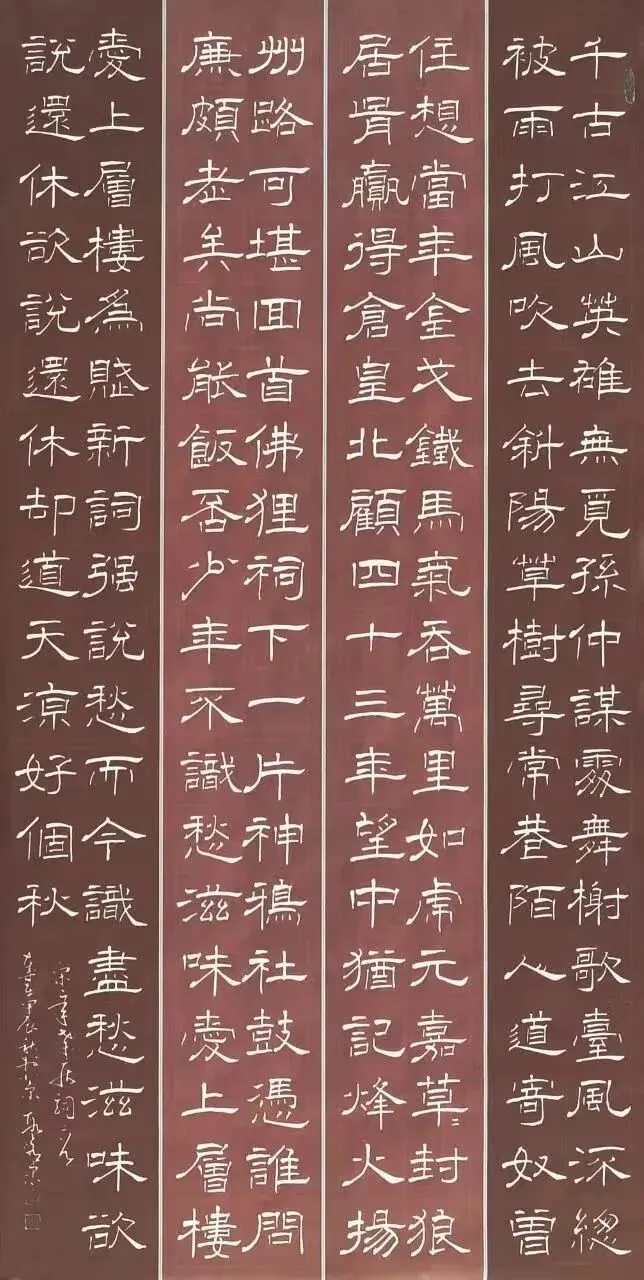 千古江山英雄無覓孫仲謀處舞榭歌臺風流總
被雨打風吹去斜陽草樹尋常巷陌人道寄奴曾
住想當年金戈鐵馬氣吞萬里如虎元嘉草〻封狼
居胥贏得倉皇北顧四十三年望中猶記烽火揚
州路可堪回首佛狸祠下一片神鴉社鼓憑誰問
廉頗老矣尚能飯否少年不識愁滋味愛上層樓
愛上層樓爲賦新詞强說愁而今識盡愁滋味欲
說還休欲說還休却道天涼好個秋
宋辛棄疾詞二首